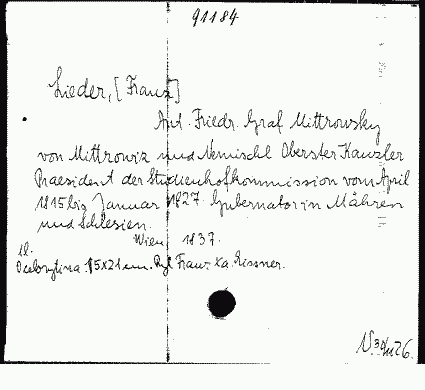 91184
Lieder, [Franz]
Ant. Friedr. Graf Mittrowsky
von Mittrowiz und Nemischl Oberster Kanzler
Praesident der Studienhofkommission vom April
1815 bis Januar 1827. Gubernator in Mähren
und Schlesien.
Wien 1837.
11.
Ocelorytina 15x21 cm. Ryl Franz Xa. Eissner.